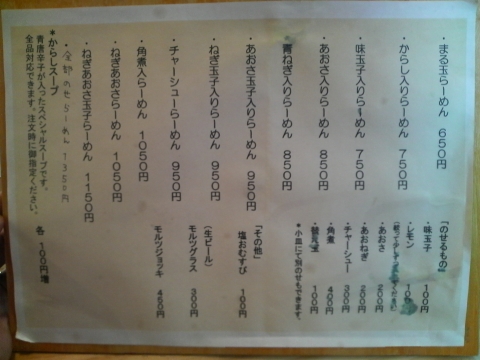 ・まる玉らーめん 650円
・からし入りらーめん 750円
・味玉子入りらーめん 750円
・あおさ入りらーめん 850円
・青ねぎ入りらーめん 850円
・あおさ玉子入りらーめん 950円
・ねぎ玉子入りらーめん 950円
・チャーシューらーめん 950円
・角煮入らーめん 1050円
・ねぎあおさらーめん 1050円
・ねぎあおさ玉子らーめん 1150円
・全部のせらーめん 1350円
*からしスープ
青唐辛子が入ったスペシャルスープです。
全品対応できます。注文時に御指定ください。
各 100円増
「のせるもの」
・味玉子 100円
・レモン
・あおさ 200円
・あおねぎ 200円
・チャーシュー 300円
・角煮 400円
・替え玉 100円
*小皿にて別のせもできます。
「その他」
塩おむすび 100円
(生ビール)
モルツグラス 300円
モルツジョッキ 450円